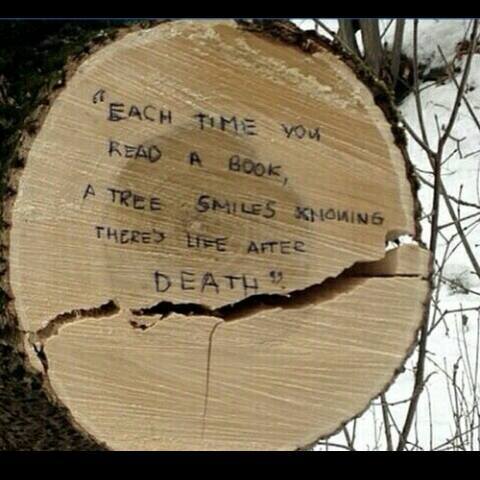 "EACH TIME YOU
READ A BOOK,
A TREE SMILES KNOWING
THERE'S LIFE AFTER
DEATH".